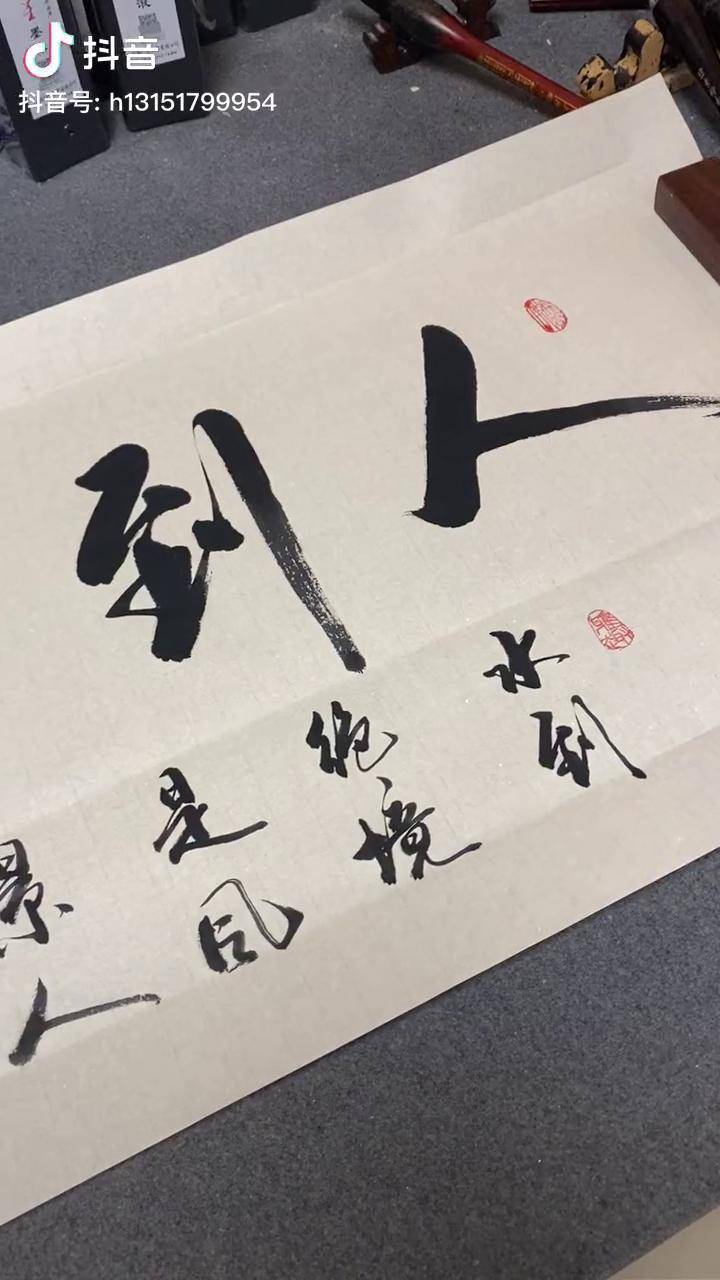 抖音
抖音号: h13151799954
人到
水到
绝境
是风
景人